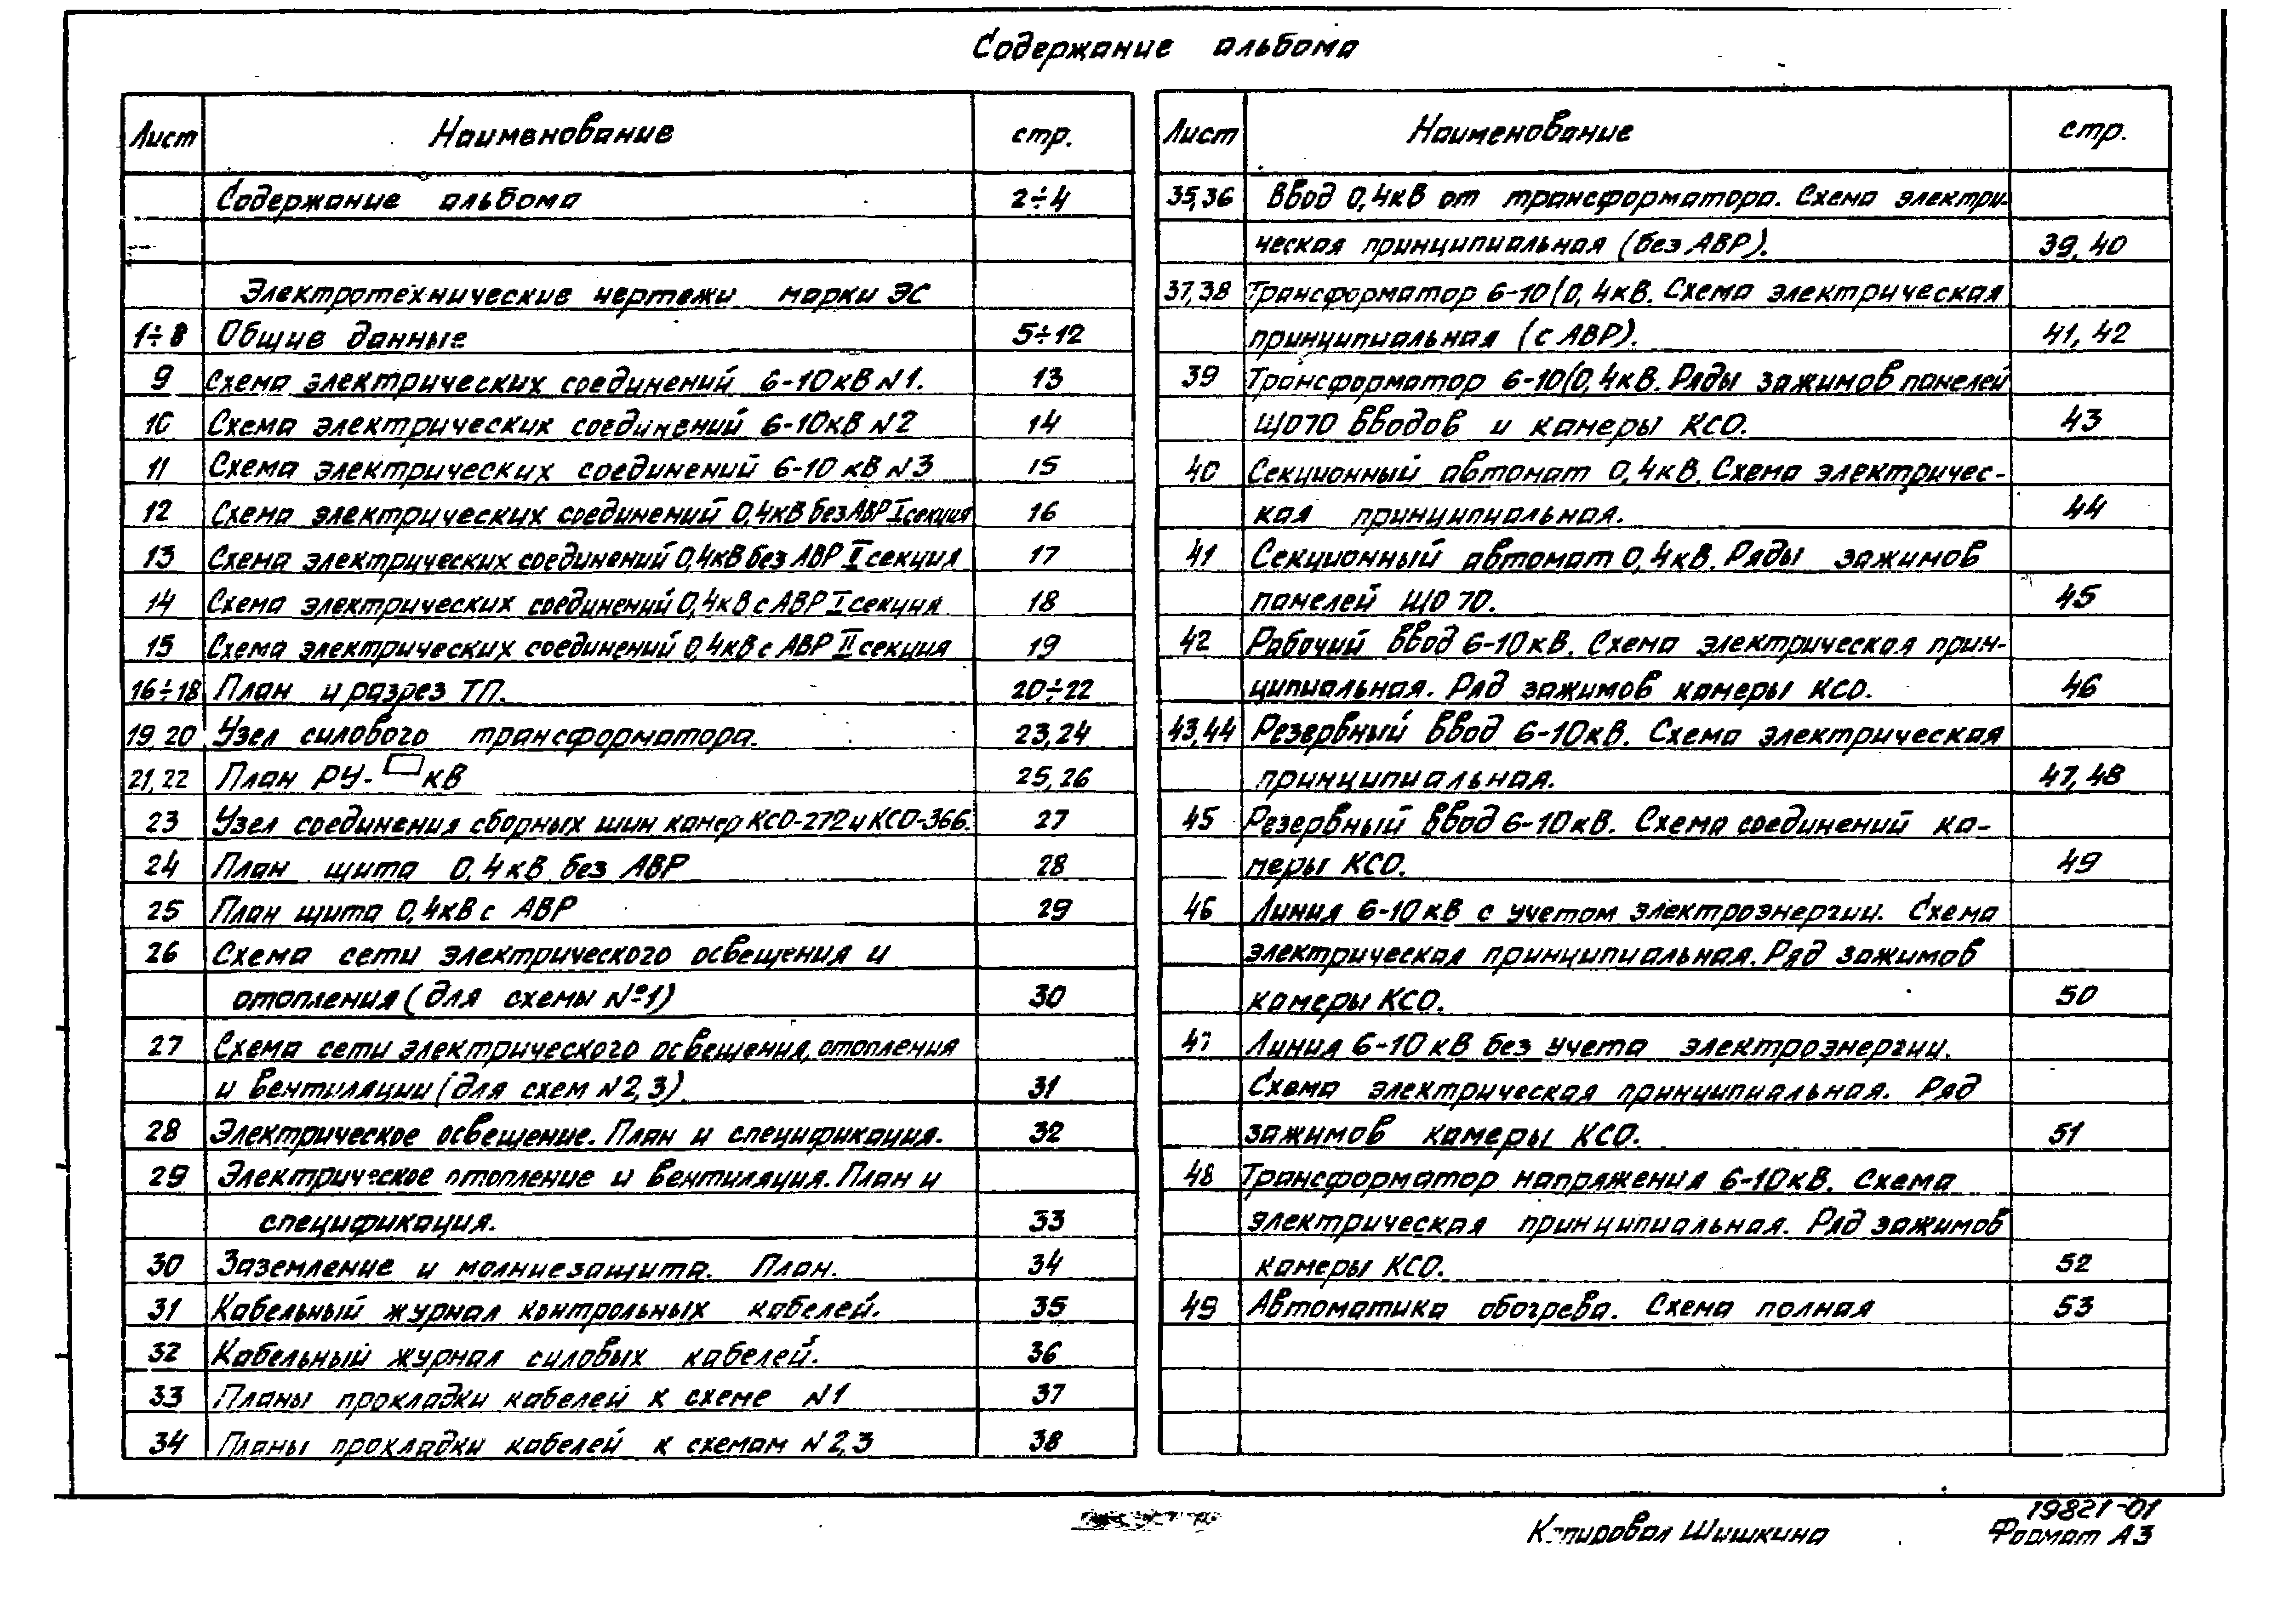 Содержание альбома
Лист Наименование стр.
Содержание альбома 2÷4
Электротехнические чертежи марки ЭС
1÷8 Общие данные 5÷12
9 Схема электрических соединений 6-10кВ N1. 13
10 Схема электрических соединений 6-10кВ N2 14
11 Схема электрических соединений 6-10 кВ N3 15
12 Схема электрических соединений 0,4кВ без АВР I секция 16
13 Схема электрических соединений 0,4кВ без АВР II секция 17
14 Схема электрических соединений 0,4кВ с АВР I секция 18
15 Схема электрических соединений 0,4кВ с АВР II секция 19
16÷18 План и разрез ТП. 20÷22
19, 20 Узел силового трансформатора. 23,24
21, 22 План РУ-□ кВ 25,26
23 Узел соединения сборных шин камер КСО-272 и КСО-366. 27
24 План щита 0,4кВ без АВР 28
25 План щита 0,4кВ с АВР 29
26 Схема сети электрического освещения и
отопления (для схемы №1) 30
27 Схема сети электрического освещения, отопления
и вентиляции (для схем N2,3) 31
28 Электрическое освещение. План и спецификация. 32
29 Электрическое отопление и вентиляция. План и
спецификация. 33
30 Заземление и молниезащита. План. 34
31 Кабельный журнал контрольных кабелей. 35
32 Кабельный журнал силовых кабелей. 36
33 Планы прокладки кабелей к схеме N1 37
34 Планы прокладки кабелей к схемам N2,3 38
Лист Наименование стр.
35,36 Ввод 0,4кВ от трансформатора. Схема электри-
ческая принципиальная (без АВР). 39, 40
37,38 Трансформатор 6-10/0,4кВ. Схема электрическая
принципиальная (с АВР). 41, 42
39 Трансформатор 6-10/0,4кВ. Ряды зажимов панелей
ЩО70 вводов и камеры КСО. 43
40 Секционный автомат 0,4кВ. Схема электричес-
кая принципиальная. 44
41 Секционный автомат 0,4кВ. Ряды зажимов
панелей ЩО 70. 45
42 Рабочий ввод 6-10кВ. Схема электрическая прин-
ципиальная. Ряд зажимов камеры КСО. 46
43,44 Резервный ввод 6-10кВ. Схема электрическая
принципиальная. 47, 48
45 Резервный ввод 6-10кВ. Схема соединений ка-
меры КСО. 49
46 Линия 6-10 кВ с учетом электроэнергии. Схема
электрическая принципиальная. Ряд зажимов
камеры КСО. 50
47 Линия 6-10 кВ без учета электроэнергии.
Схема электрическая принципиальная. Ряд
зажимов камеры КСО. 51
48 Трансформатор напряжения 6-10кВ. Схема
электрическая принципиальная. Ряд зажимов
камеры КСО. 52
49 Автоматика обогрева. Схема полная 53
19821-01
Копировал Шишкина Формат А3